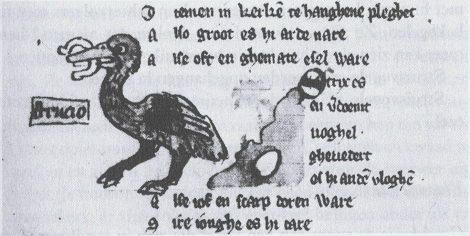 temen in kerkē te hanghene pleghet
So groot es hi arde nare
Alse oft en ghemate esel ware
Strucio
Structes
en ydoomt
voghel
ghevedert
of hi andē vloghē
Alse wf en scarp doren ware
Sire ionghe es hi care